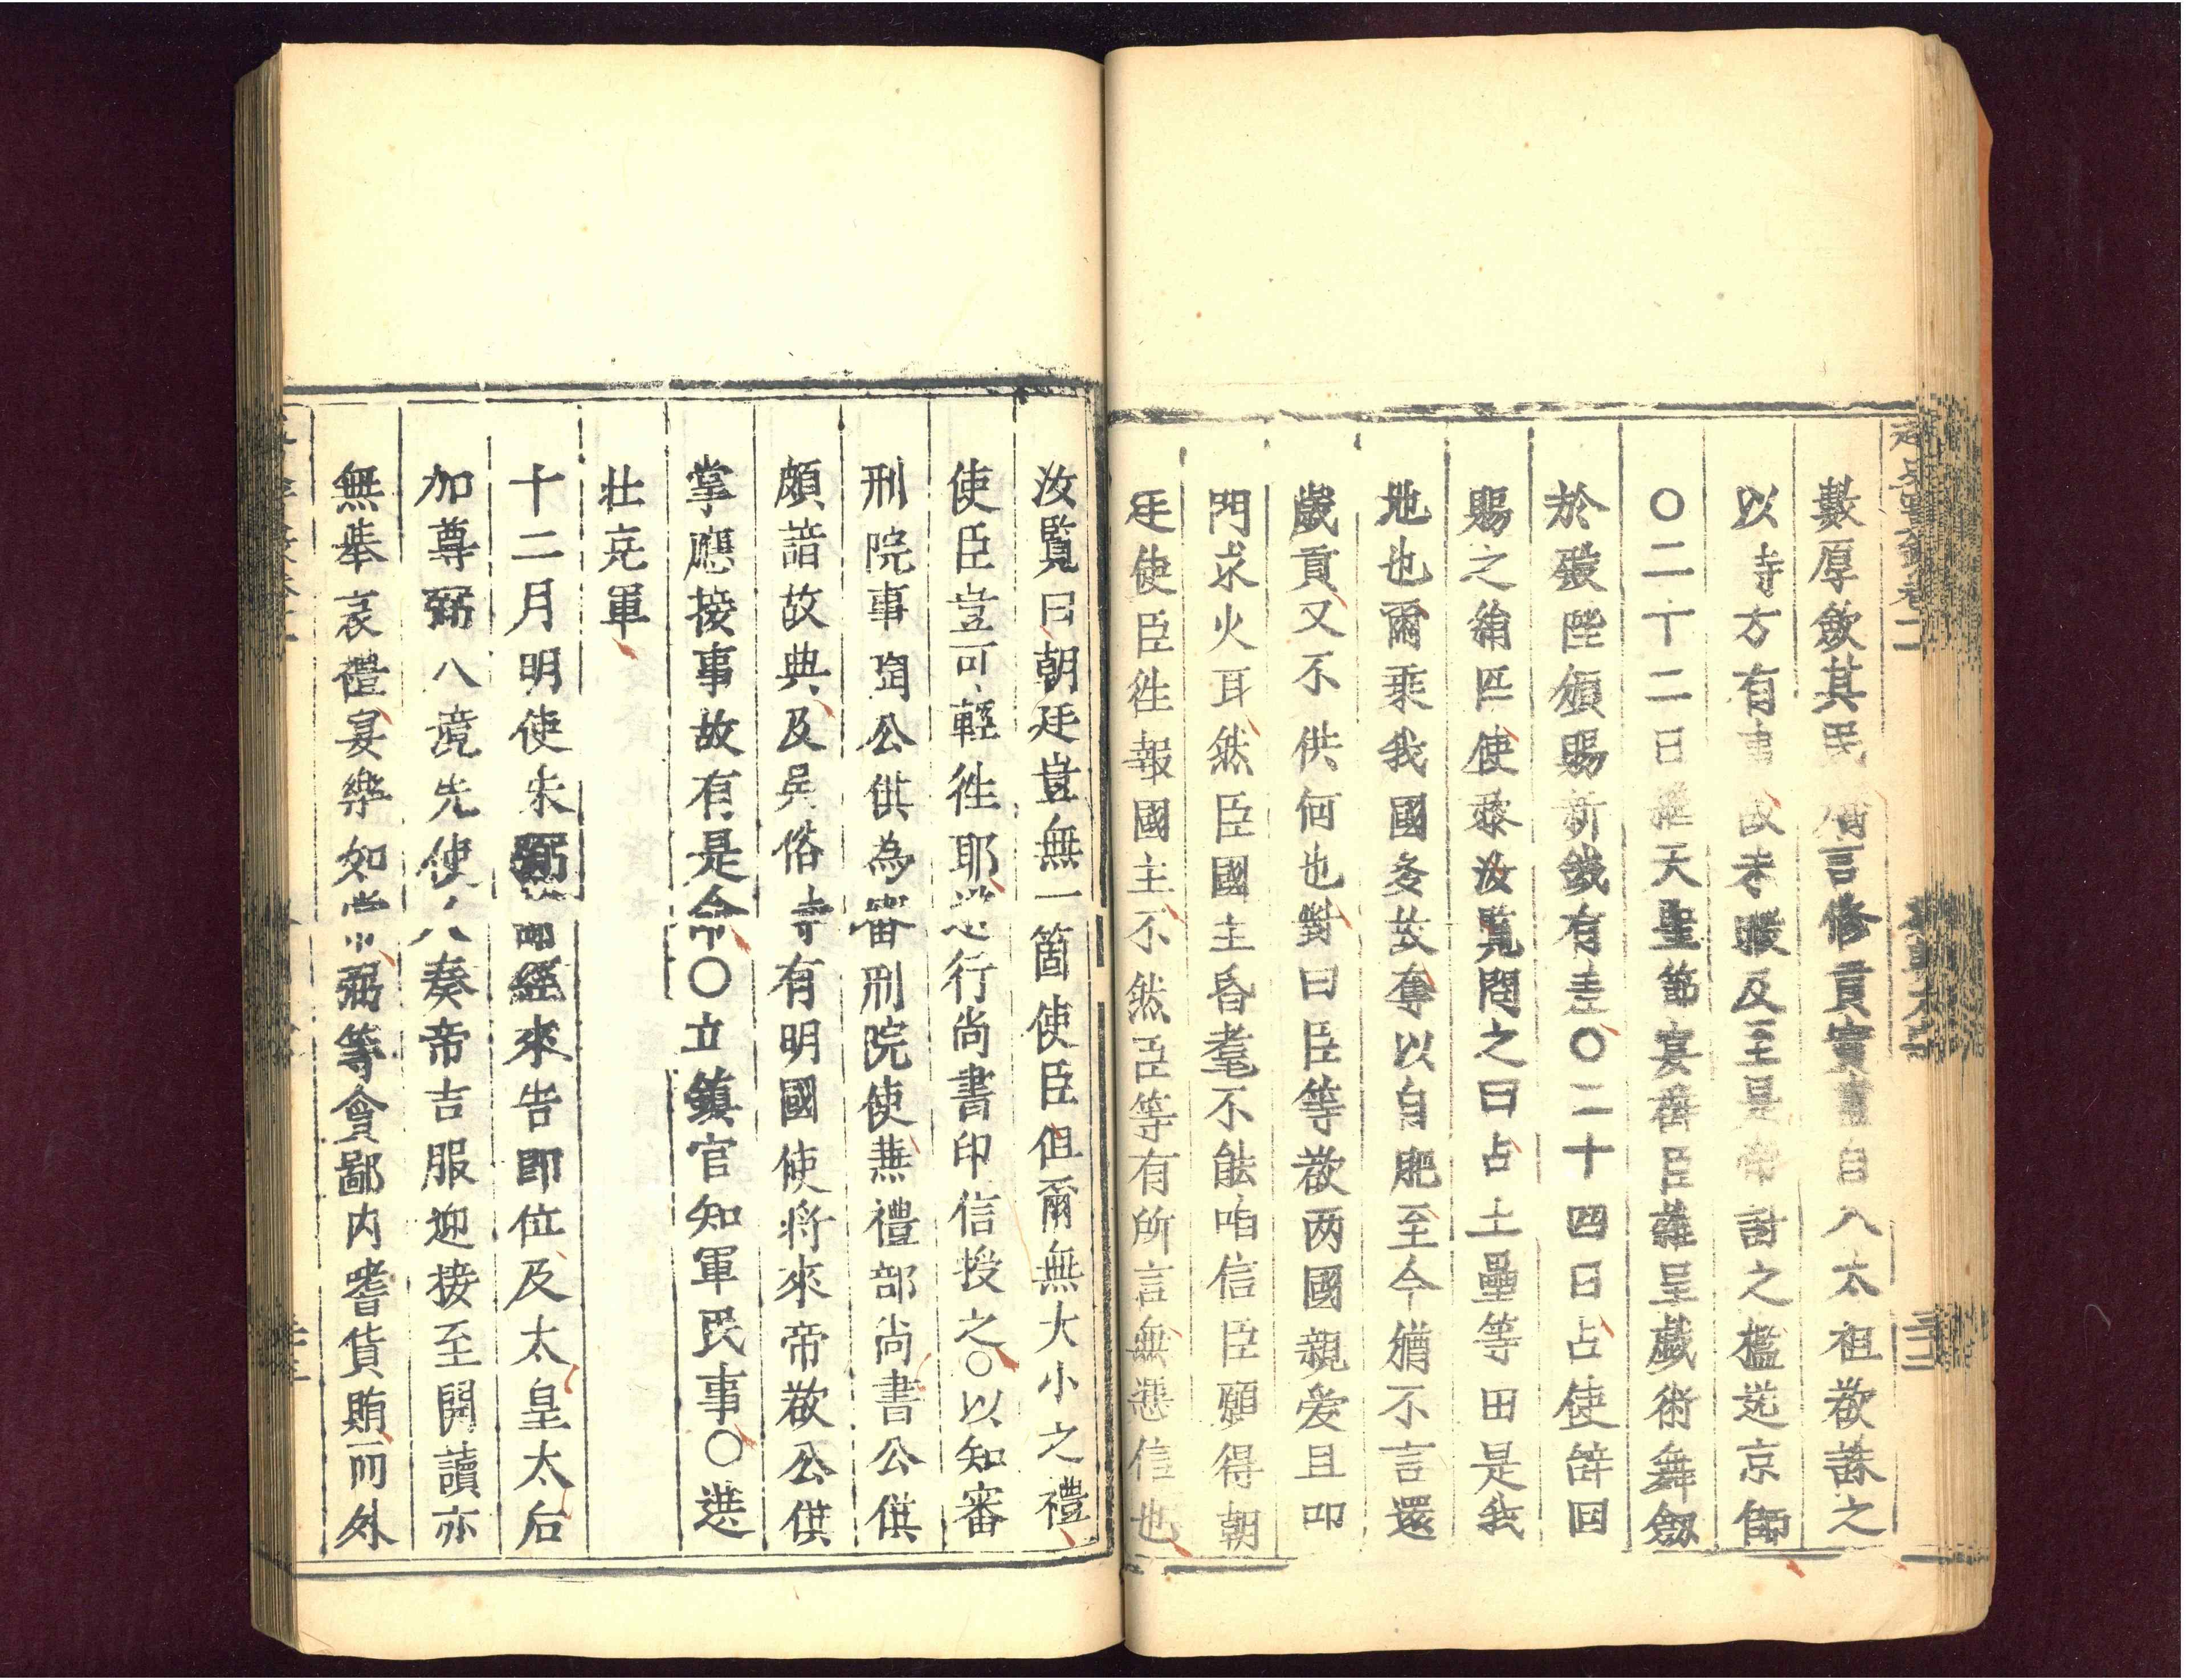 越史實錄卷二
本朝太宗
三十二
數厚斂其民
言修貢實
自八太祖欲誅之
以時方有事故未暇及至是
討之檻送京師
○二十二日
天聖節宴群臣雜呈戲術舞劔
於
陛頒賜新錢有差○二十四日占使辞回
賜之絹匹使黎汝覽問之曰占土壘等田是我
地也爾乘我國多故奪以自肥至今猶不言還
歲貢又不供何也對曰臣等欲两國親爱且叩
門求火耳然臣國主昏耄不能
信臣願得朝
廷使臣往報國主不然臣等有所言無憑信也
汝覧曰朝廷豈無一箇使臣但爾無大小之禮
使臣豈可輕徃耶
行尚書印信授之○以知審
刑院事
公供為審刑院使兼禮部尚書公供
頗諳故典及吴俗
有明國使將來帝欲公供
掌應接事故有是命○立鎮官知軍民事○選
壯充軍
十二月明使朱弼
來告即位及太皇太后
加尊弼入境先使人入奏帝吉服迎接至開讀亦
無舉哀禮宴樂如常
弼等貪鄙内嗜貨賄而外